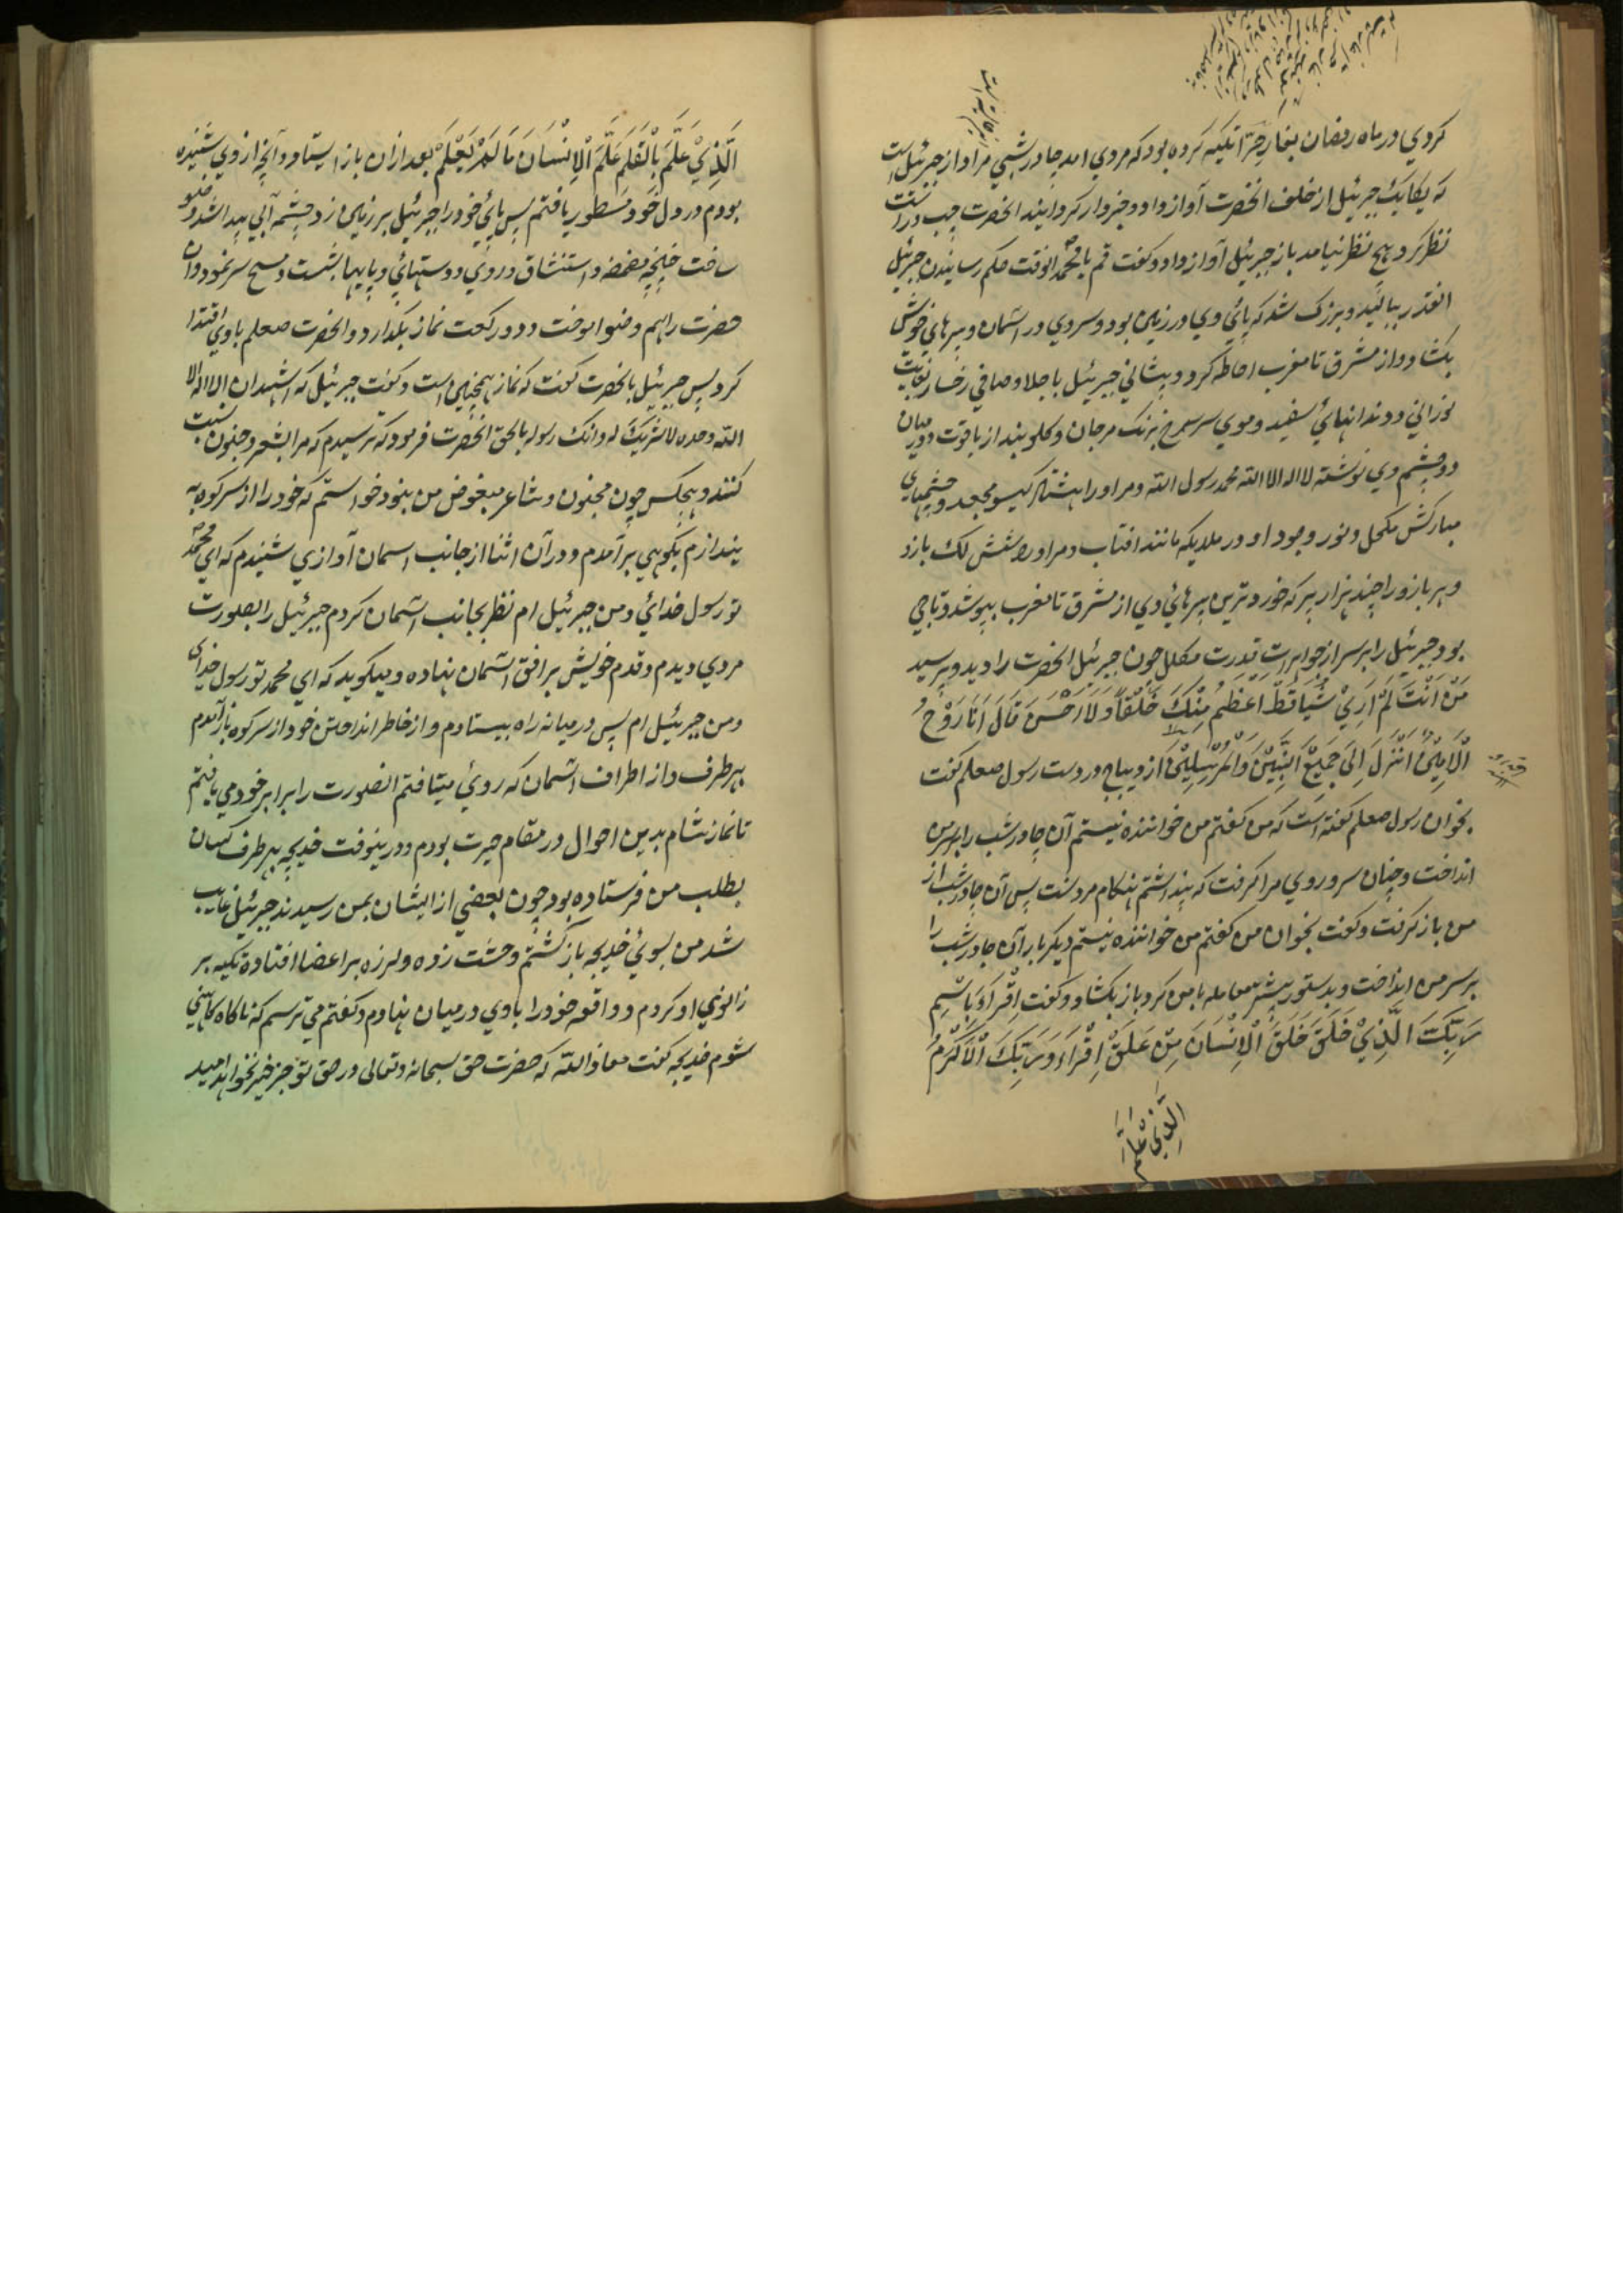 کردي در ماه رمضان بغار حرا تکیه کرده بود که مردي امد چادر شبي مر او از جبرئیل است
که یکایک جبرئیل از خلف انحضرت آواز داد و خبردار کردانید انحضرت چپ و راست
نظر کرد هیچ نظر نیامد باز جبرئیل آواز داد و کفت قم یا محمد انوقت حکم رسانیدن جبرئیل
انقدر ببالید و بزرک شد که پائي وي در زمین بود و سر وي در اسمان و پرهاي خویش
بکشاد و از مشرق تا مغرب احاطه کرد و پیشاني جبرئیل با جلا و صافي رخسار بغایت
نوراني و دندانهائ سفید و موي سر سرخ برنک مرجان و کلوبند از یاقوت و درمیان
دو چشم وي نوشته لا اله الا الله محمد رسول الله و مر او را هشتاد کیسو مجعد و چشمهاي
مبارکش مکحل و نور وجود او در ملایکه مانند افتاب و مر او را شش لک بازو
و هر بازو را چند هزار پر که خوردترین پرهائي وي از مشرق تا مغرب بپوشد و تاجي
بود جبرئیل را بر سر از جواهرات قدرت مکلل چون جبرئیل انحضرت را دید و پرسید
مَنْ اَنْتَ لَمْ اَرِيْ شَیْاً قَطُّ اعظمُ مِنْكَ خَلْقاً وَلَا اَحْسَنَ قَالَ اَنَا رُوْحُ
الْاَمِیْنُ اَنْزَلَ اِلَی جَمِیْعَ النَّبِیّیْنَ وَالْمُرْسَلِیْنَ از دیباج در دست رسول صعلم کفت
بخوان رسول صعلم کفته است که من کفتم من خواننده نیستم آن چادر شب را بر سر من
انداخت و چنان سر و روي مرا کرفت که پنداشتم هنکام مردنست پس آن چادر شب از
من باز کرفت و کفت بخوان من کفتم من خواننده نیستم دیکر بار آن چادر شب را
بر سر من انداخت و بدستور پیشتر معامله با من کرد باز بکشاد و کفت اِقْرَأ بِاسْمِ
رَبِّكَ الَّذِيْ خَلَقَ خَلَقَ الْاِنْسَانَ مِنْ عَلَقْ اِقْرَاءْ وَرَبُّكَ الْاَكْرَمُ
الَّذِيْ عَلَّمَ
الَّذِيْ عَلَّمَ بِالْقَلَمِ عَلَّمَ الْاِنْسَانَ مَا لَمْ یَعْلَمْ بعد ازان باز ایستاد و آنچه از وي شنیده
بودم در دل خود مسطور یافتم پس پائي خود را جبرئیل بر زمین زد چشمه آبي پیدا شد وضو
ساخت چنانچه مضمضه و استنشاق و روي و دستهائي و پایها بشست و مسح سر نمود و ان
حضرت را هم وضو اموخت و دو رکعت نماز بکذارد و انحضرت صعلم باوي اقتدا
کرد پس جبرئیل بانحضرت کفت که نماز همچنین است و کفت جبرئیل که اشهد ان لا اله الا
الله وحده لا شریک له و انک رسوله بالحق انحضرت فرمود که ترسیدم که مرا بشعر و جنون نسبت
کنند و هیچکس چون مجنون و شاعر مبغوض من نبود خواستم که خود را از سر کوه به
یندازم بکوهي برآمدم و در آن اثنا از جانب اسمان آوازي شنیدم که اي محمد
تو رسول خدائي و من جبرئیل ام نظر بجانب اسمان کردم جبرئیل را بصورت
مردي دیدم و قدم خویش بر افق اسمان نهاده و میکوید که اي محمد تو رسول خداي
و من جبرئیل ام پس در میانه راه بیستادم و از خاطر انداختن خود از سر کوه باز آمدم
بهر طرف و از اطراف اسمان که روئي میتافتم انصورت را برابر خود مي یافتم
تا نماز شام بدین احوال در مقام حیرت بودم و درینوقت خدیجه بهر طرف کسان
بطلب من فرستاده بود چون بعضي از ایشان بمن رسیدند جبرئیل غایب
شد من بسوئي خدیجه باز کشتم وحشت زده و لرزه بر اعضا افتاده تکیه بر
زانوي او کردم و واقعه خود را باوي درمیان نهادم و کفتم مي ترسم که ناکاه کاهني
شوم خدیجه کفت معاذ الله که حضرت حق سبحانه و تعالی در حق تو جز خیر نخواهد امید